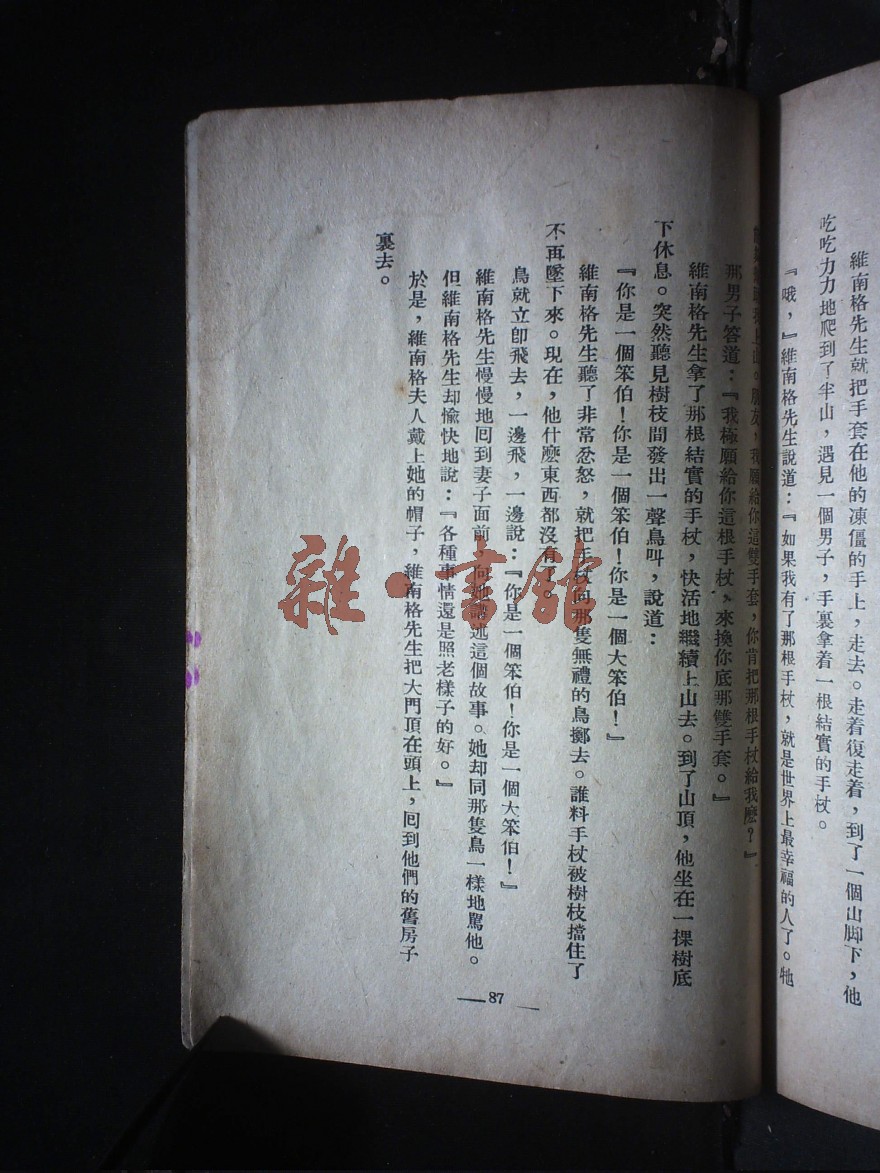 維南格先生就把手套在他的凍僵的手上，走去。走着復走着，到了一個山脚下，他
吃吃力力地爬到了半山，遇見一個男子，手裏拿着一根結實的手杖。
『哦，』維南格先生說道：『如果我有了那根手杖，就是世界上最幸福的人了。牠
上山。朋友，我願給你這雙手套，你肯把那根手杖給我麽？』
那男子答道：『我極願給你這根手杖，來換你底那雙手套。』
維南格先生拿了那根結實的手杖，快活地繼續上山去。到了山頂，他坐在一棵樹底
下休息。突然聽見樹枝間發出一聲鳥叫，說道：
『你是一個笨伯！你是一個笨伯！你是一個大笨伯！』
維南格先生聽了非常忿怒，就把手杖向那隻無禮的鳥擲去。誰料手杖被樹枝擋住了
不再墜下來。現在，他什麽東西都沒有了。
鳥就立卽飛去，一邊飛，一邊說：『你是一個笨伯！你是一個大笨伯！』
維南格先生慢慢地囘到妻子面前，向她講述這個故事。她却同那隻鳥一樣地罵他。
但維南格先生却愉快地說：『各種事情還是照老樣子的好。』
於是，維南格夫人戴上她的帽子，維南格先生把大門頂在頭上，囘到他們的舊房子
裏去。
87
雜·書館